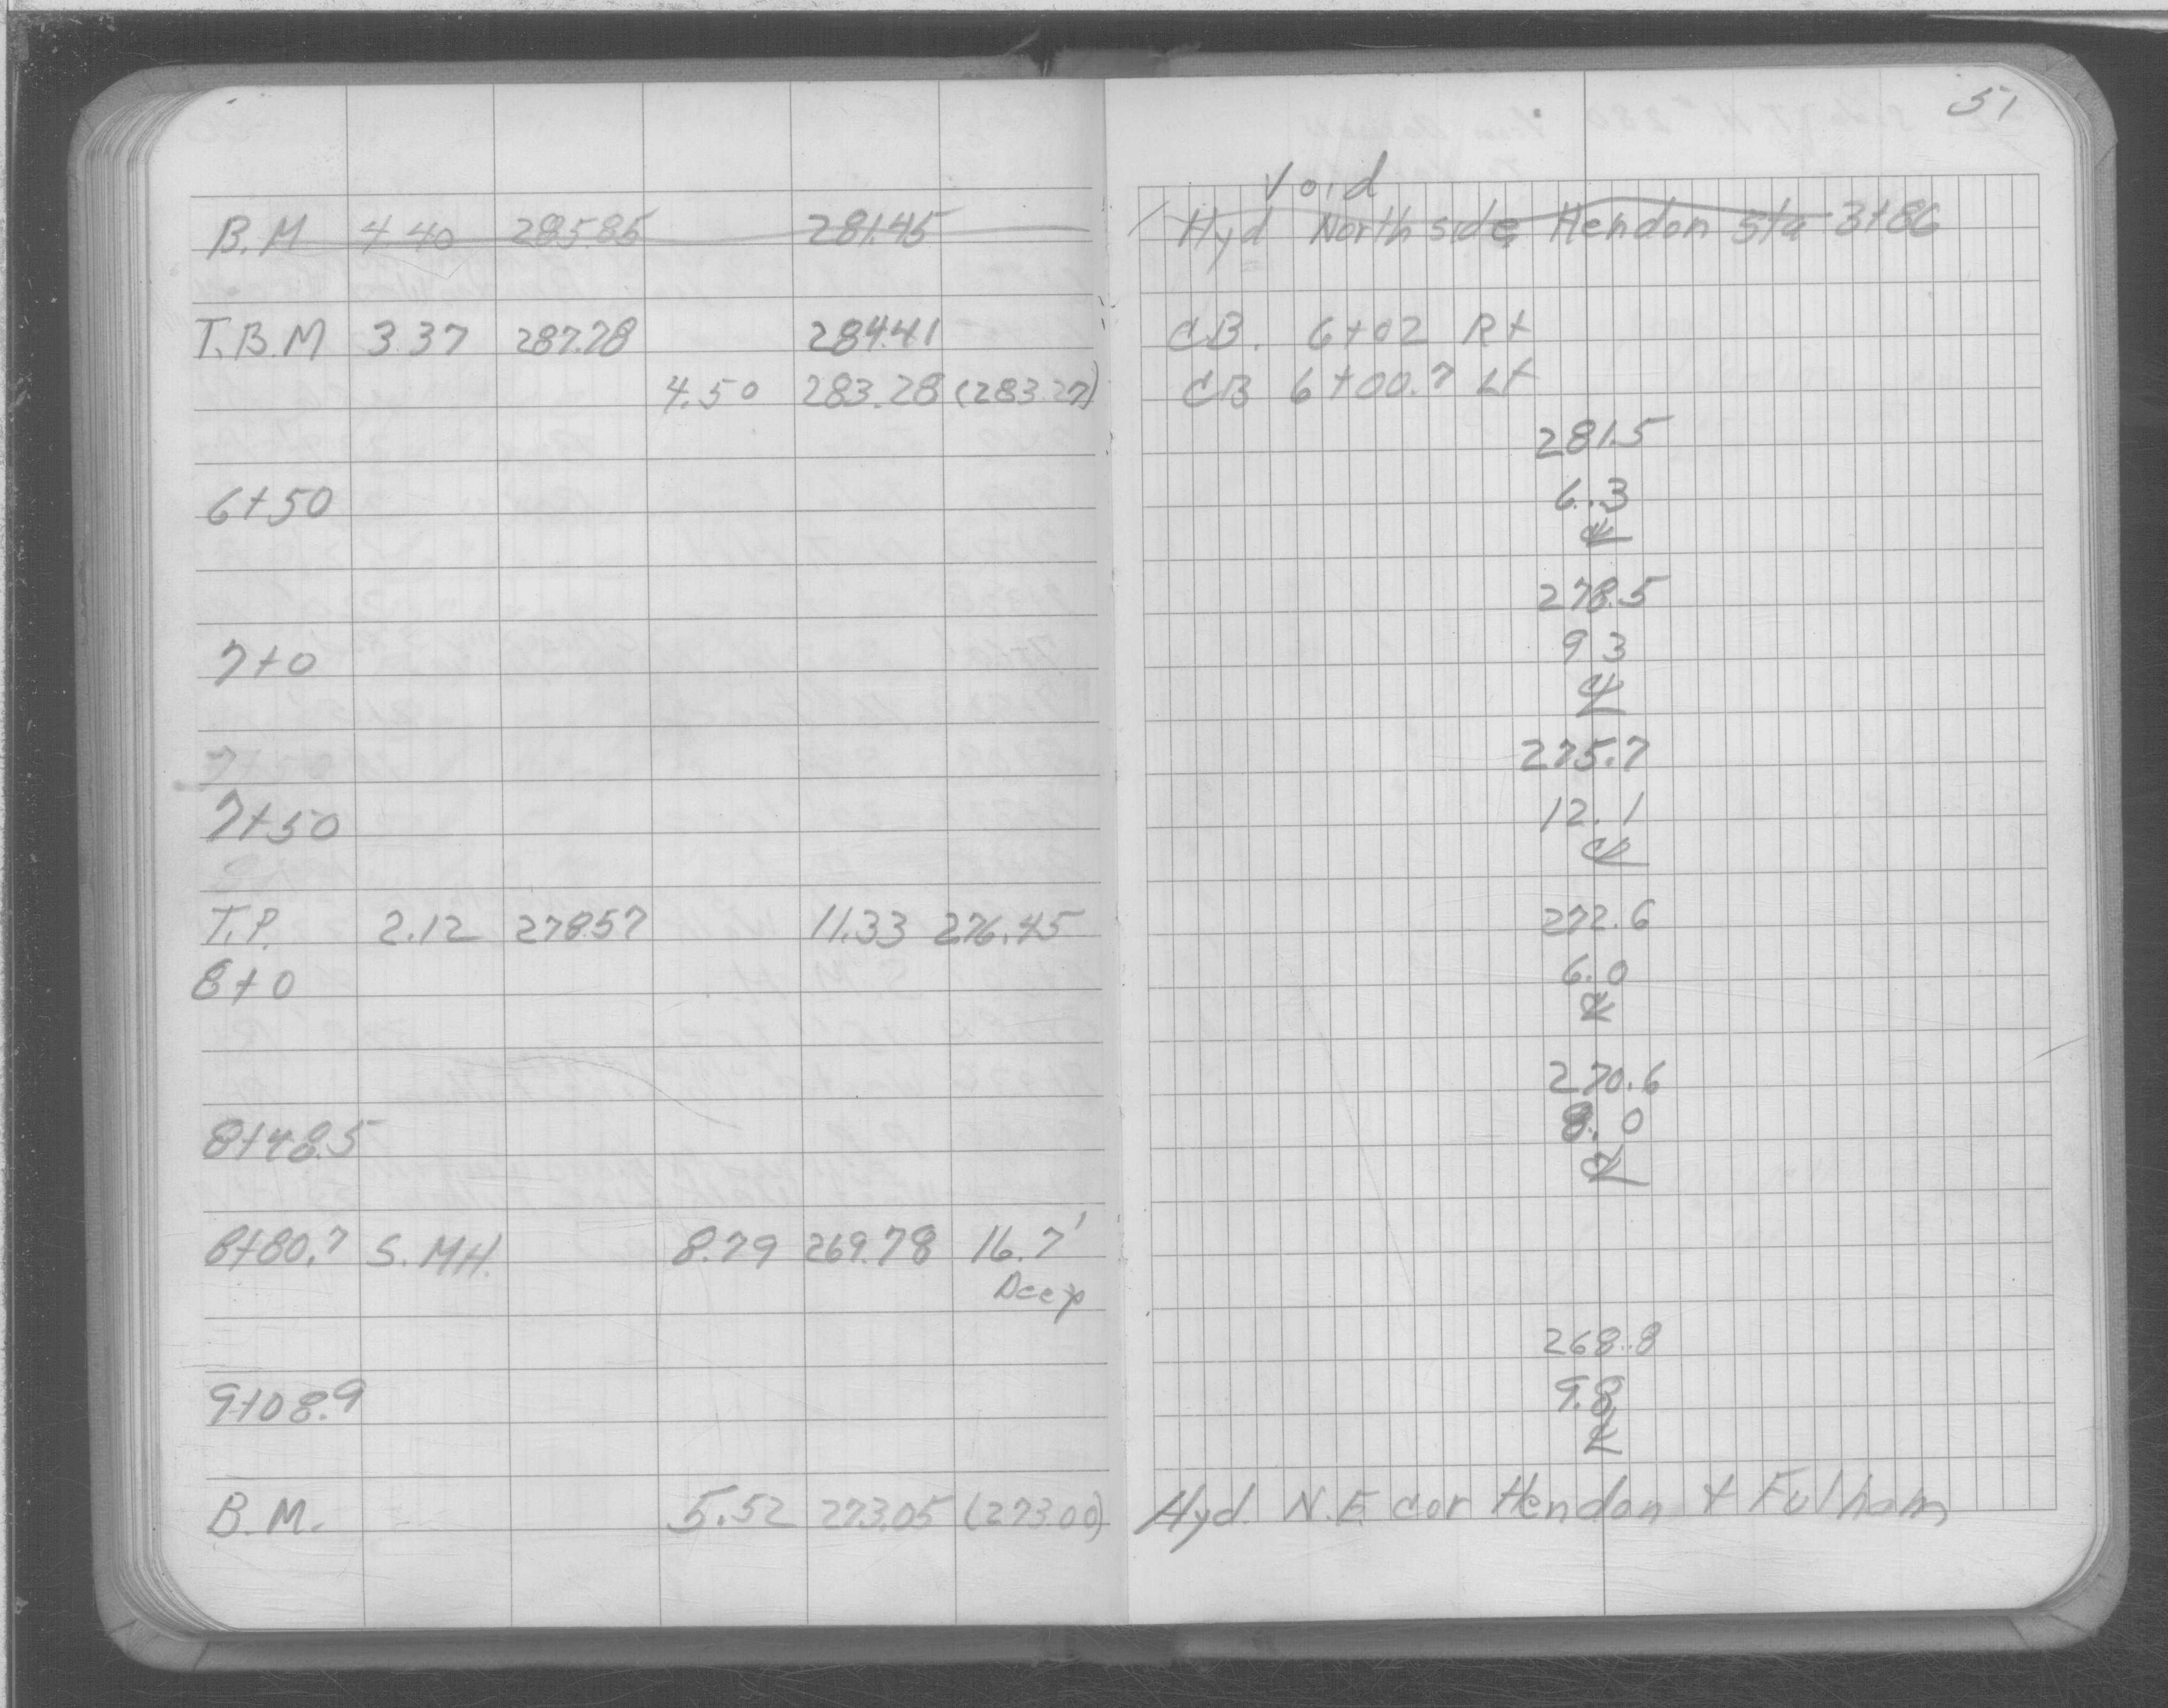 51
Void
B.M 4.40 285.85 281.45 Hyd North side Hendon Sta 3+86
T.B.M 3.37 287.78 284.41 CB. 6+02 Rt
4.50 283.28 (283.27) CB 6+00.7 Lt
281.5
6+50 6.3
℄
278.5
7+0 9 3
℄
7+50 275.7
7+50 12.1
℄
T.P. 2.12 278.57 11.33 276.45 272.6
8+0 6.0
℄
270.6
8+48.5 8.0
℄
8+80.7 S. MH. 8.79 269.78 16.7'
Deep
268.8
9+08.9 9.8
℄
B.M. 5.52 273.05 (273.00) Hyd. N.E. cor Hendon + Fulham